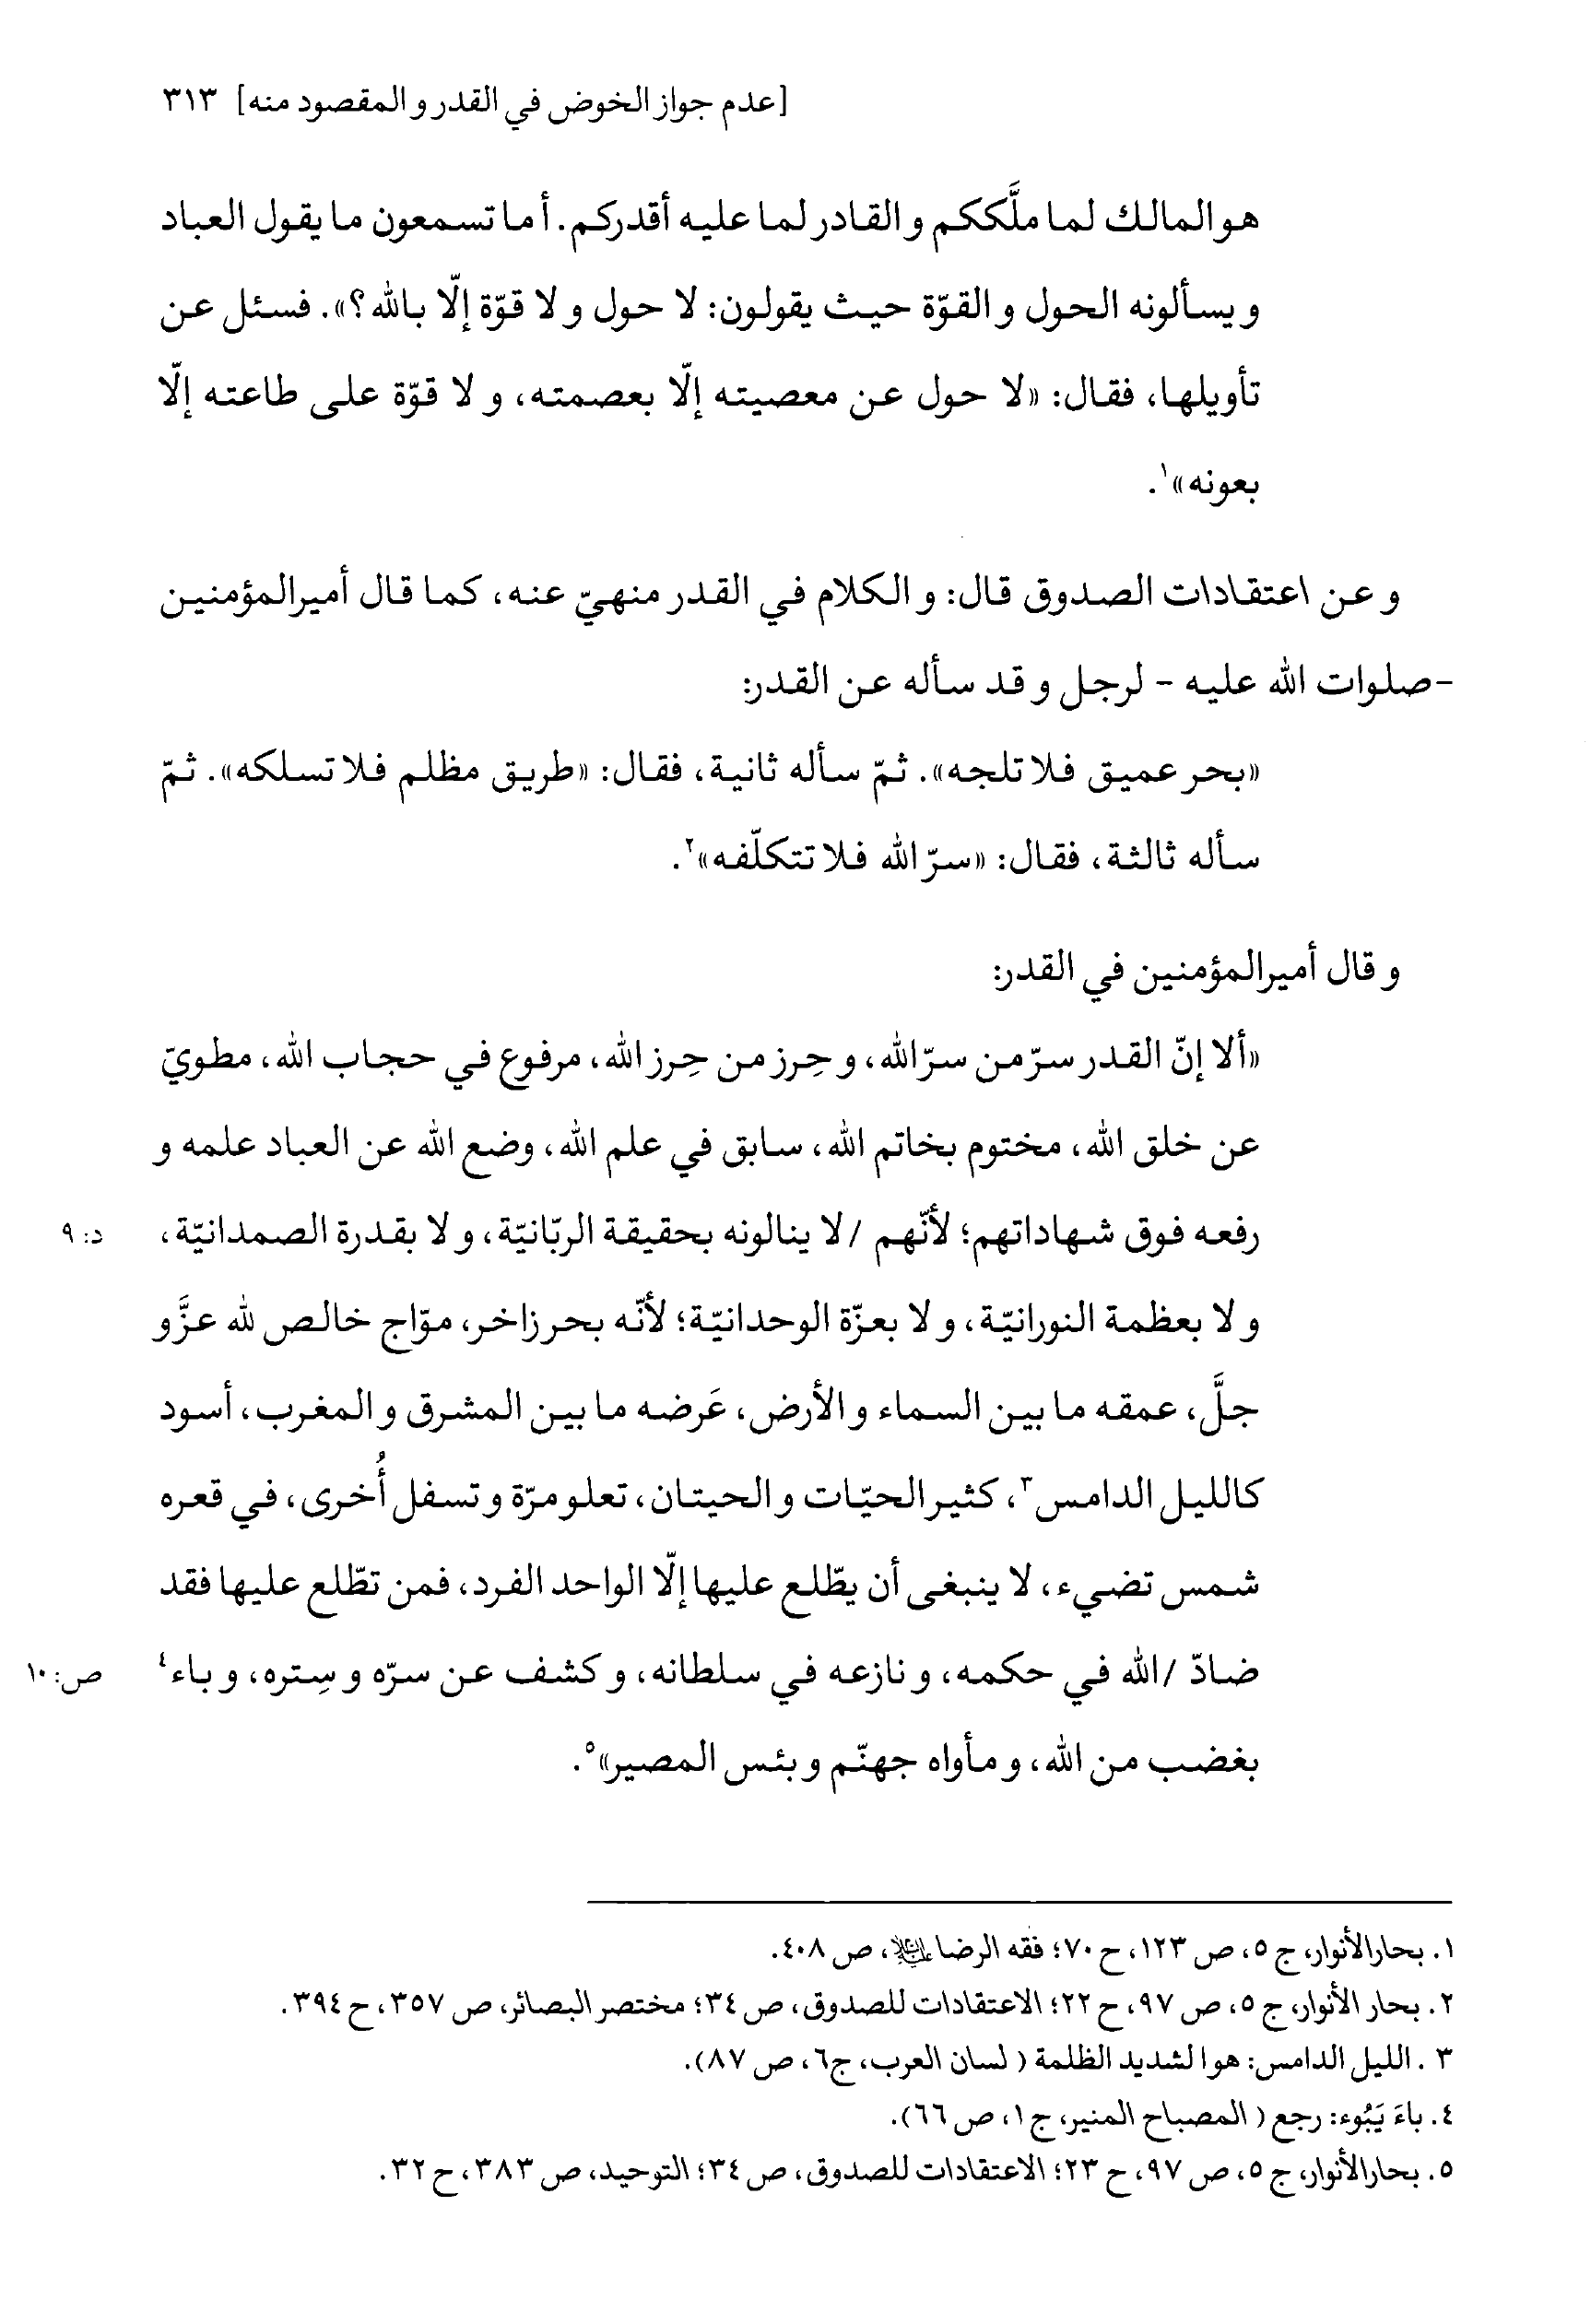 [عدم جواز الخوض في القدر و المقصود منه] ٣١٣
هو المالك لما ملَّككم و القادر لما عليه أقدركم. أ ما تسمعون ما يقول العباد
و يسألونه الحول و القوّة حيث يقولون: لا حول و لا قوّة إلّا بالله؟». فسئل عن
تأويلها، فقال: «لا حول عن معصيته إلّا بعصمته، و لا قوّة على طاعته إلّا
بعونه»١.
و عن اعتقادات الصدوق قال: و الكلام في القدر منهيّ عنه، كما قال أميرالمؤمنين
-صلوات الله عليه - لرجل و قد سأله عن القدر:
«بحر عميق فلا تلجه». ثمّ سأله ثانية، فقال: «طريق مظلم فلا تسلكه». ثمّ
سأله ثالثة، فقال: «سرّ الله فلا تتكلّفه»٢.
و قال أميرالمؤمنين في القدر:
«ألا إنّ القدر سرّ من سرّ الله، و حِرز من حِرز الله، مرفوع في حجاب الله، مطويّ
عن خلق الله، مختوم بخاتم الله، سابق في علم الله، وضع الله عن العباد علمه و
رفعه فوق شهاداتهم؛ لأنّهم / لا ينالونه بحقيقة الربّانيّة، و لا بقدرة الصمدانيّة، د: ٩
و لا بعظمة النورانيّة، و لا بعزّة الوحدانيّة؛ لأنّه بحر زاخر، موّاج خالص لله عزَّ و
جلَّ، عمقه ما بين السماء و الأرض، عَرضه ما بين المشرق و المغرب، أسود
كالليل الدامس٣، كثير الحيّات و الحيتان، تعلو مرّة و تسفل أُخرى، في قعره
شمس تضيء، لا ينبغى أن يطّلع عليها إلّا الواحد الفرد، فمن تطّلع عليها فقد
ضادّ /الله في حكمه، و نازعه في سلطانه، و كشف عن سرّه و سِتره، و باء٤ ص: ١٠
بغضب من الله، و مأواه جهنّم و بئس المصير»٥.
١. بحارالأنوار، ج ٥، ص ١٢٣، ح ٧٠؛ فقه الرضا عليه السلام، ص ٤٠٨.
٢. بحار الأنوار، ج ٥، ص ٩٧، ح ٢٢؛ الاعتقادات للصدوق، ص ٣٤؛ مختصر البصائر، ص ٣٥٧، ح ٣٩٤.
٣ . الليل الدامس: هو الشديد الظلمة ( لسان العرب، ج٦، ص ٨٧).
٤. باءَ يَبُوء: رجع ( المصباح المنير، ج ١، ص ٦٦).
٥. بحارالأنوار، ج ٥، ص ٩٧، ح ٢٣؛ الاعتقادات للصدوق، ص ٣٤؛ التوحيد، ص ٣٨٣، ح ٣٢.